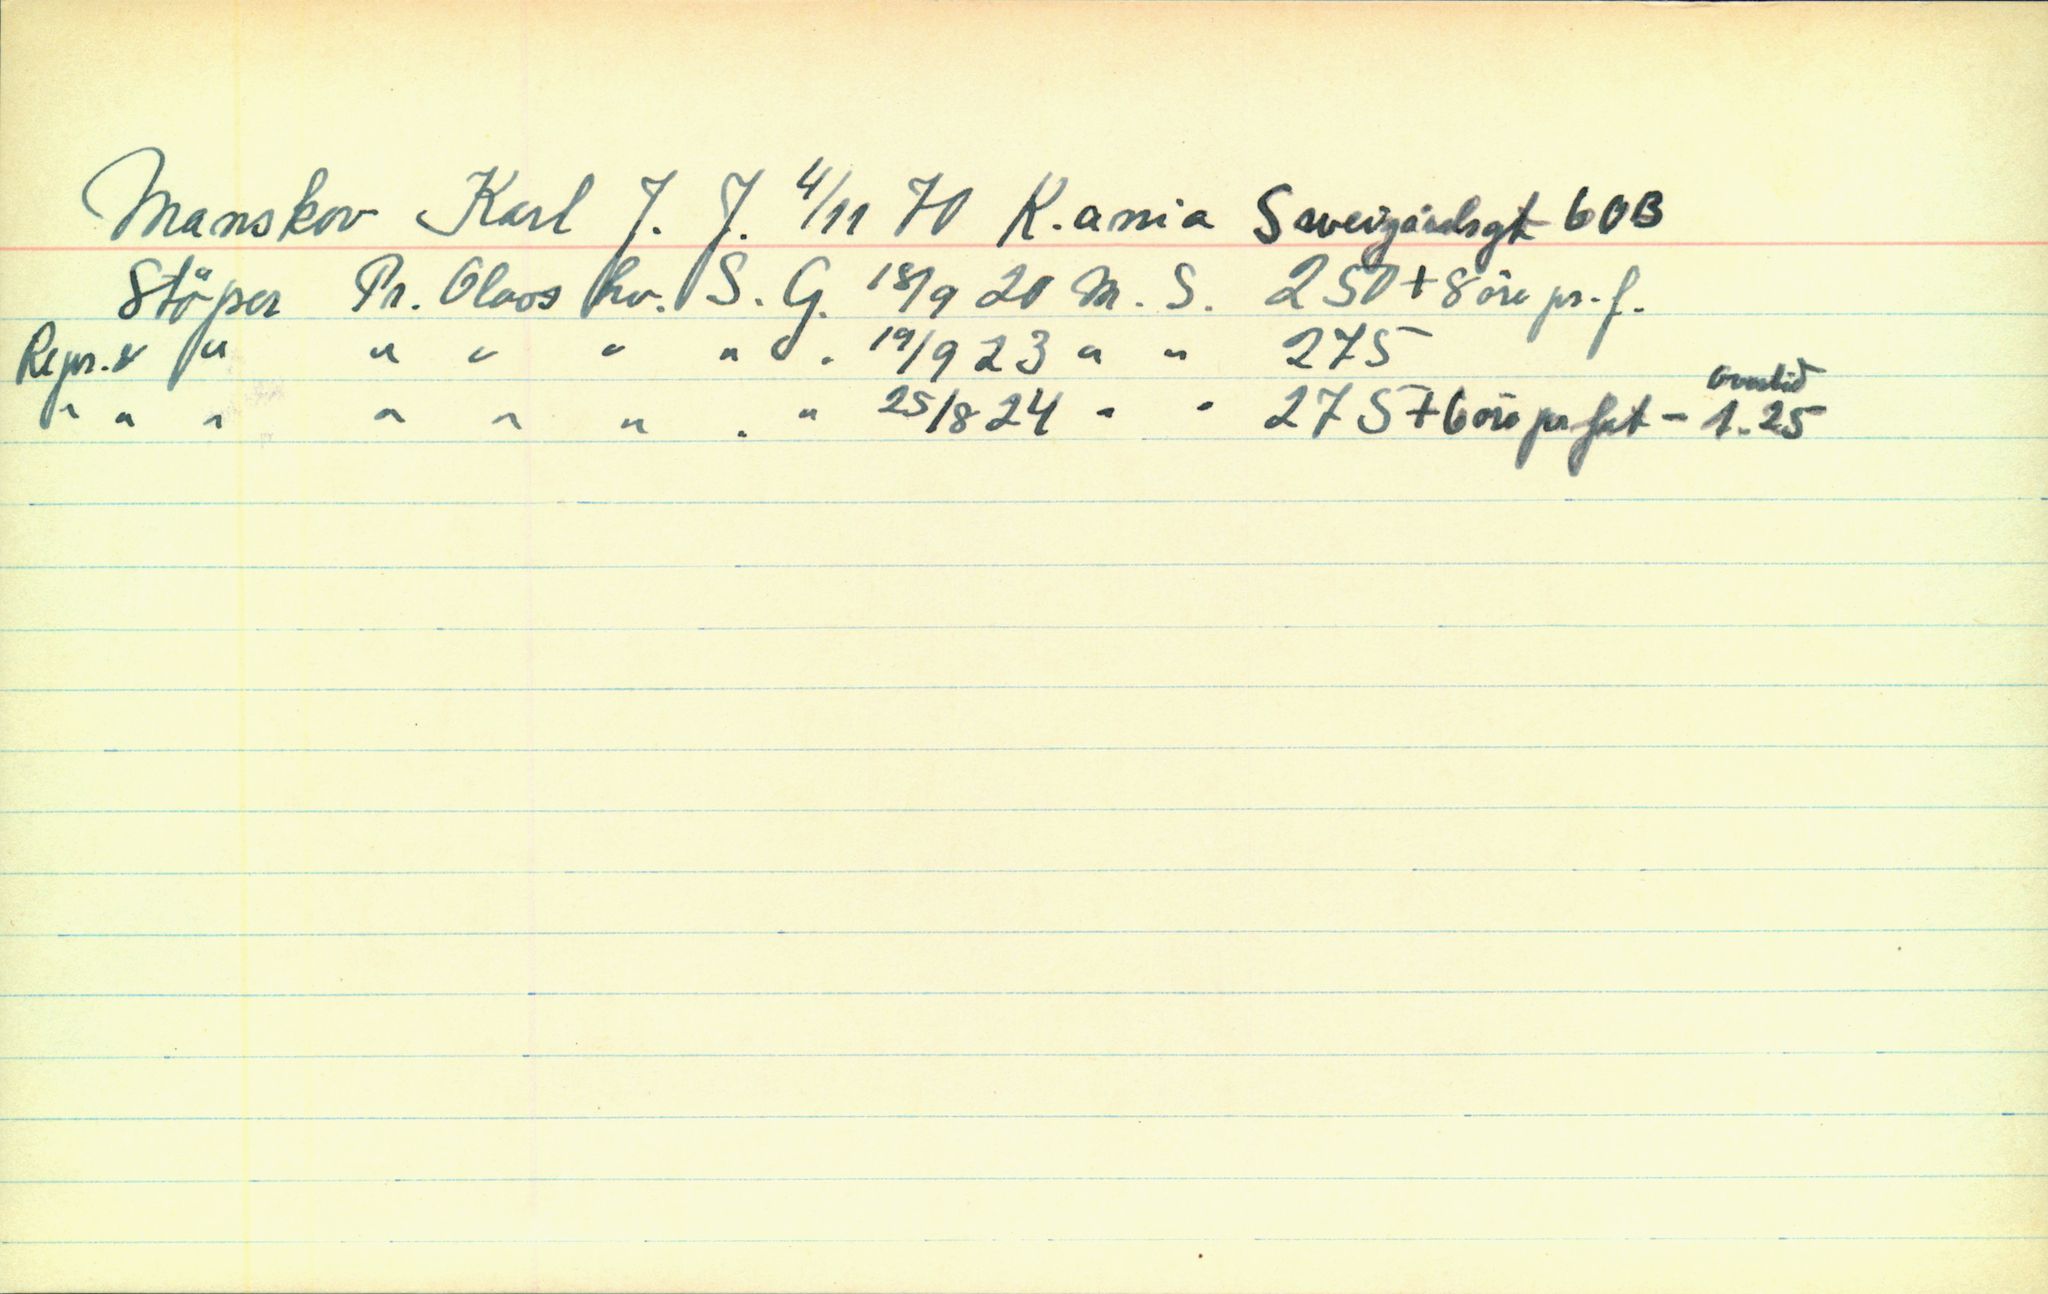 Manskov Karl J. J. 4/11 70 K.ania Sweigårdsgt 60B
Stöper Pr. Olaos hv. S. G. 18/9 20 M. S. 250 + 8 öre pr. f.
Repr. & " " " " " " . 19/9 23 " " 275
" " " " " " . " 25/8 24 " " 275 + 6 öre pr fat - 1.25
overtid